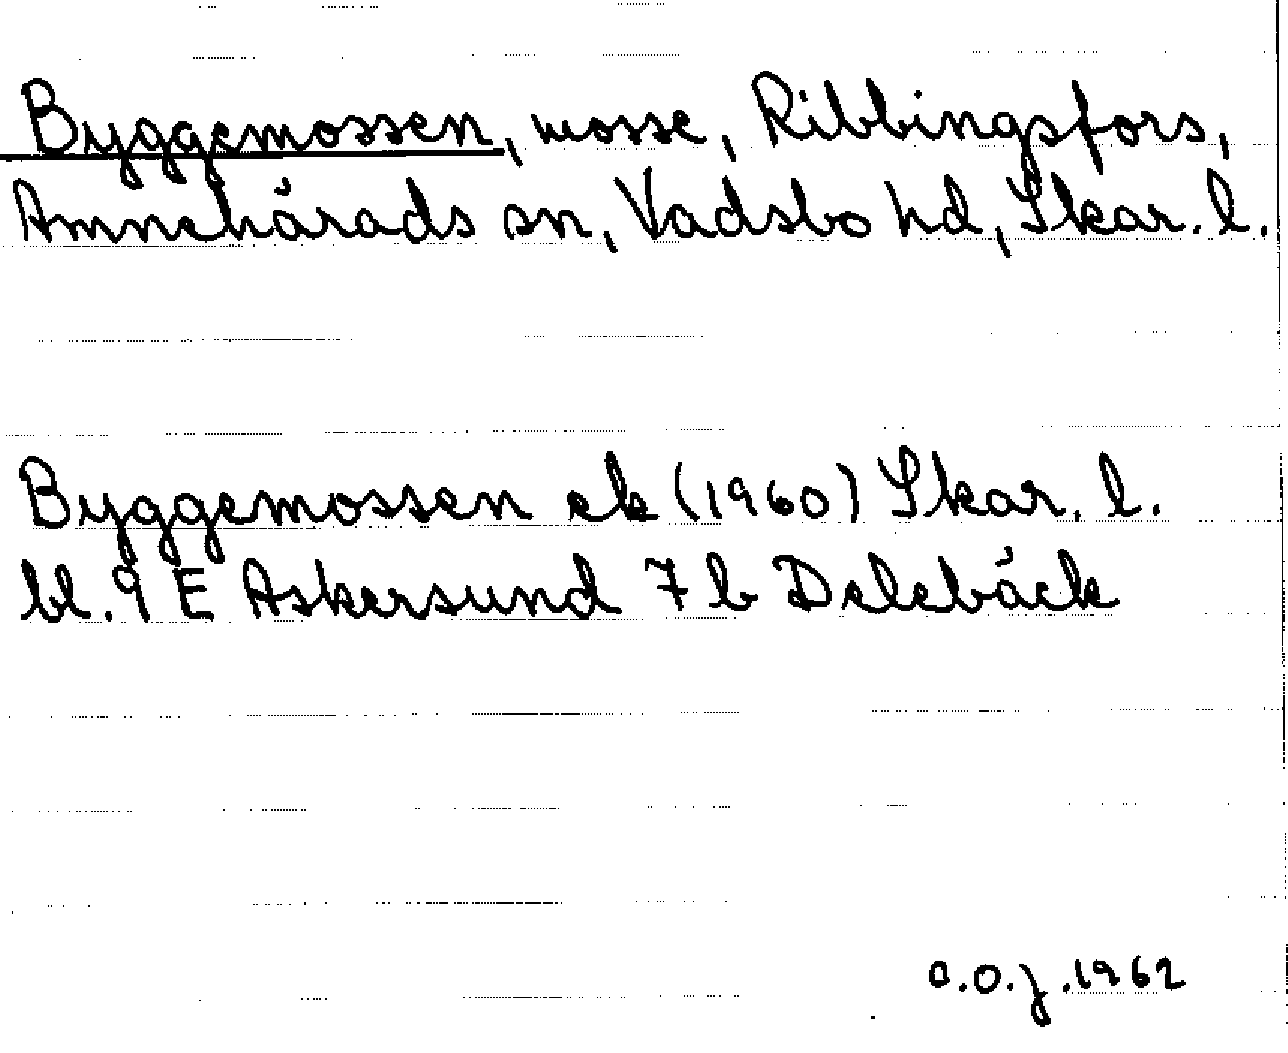 Byggemossen, mosse, Ribbingsfors,
Amnehärads sn, Vadsbo hd, Skar. l.
Byggemossen ek (1960) Skar. l.
bl. 9 E Askersund 7 b Delebäck
C.O.J. 1962